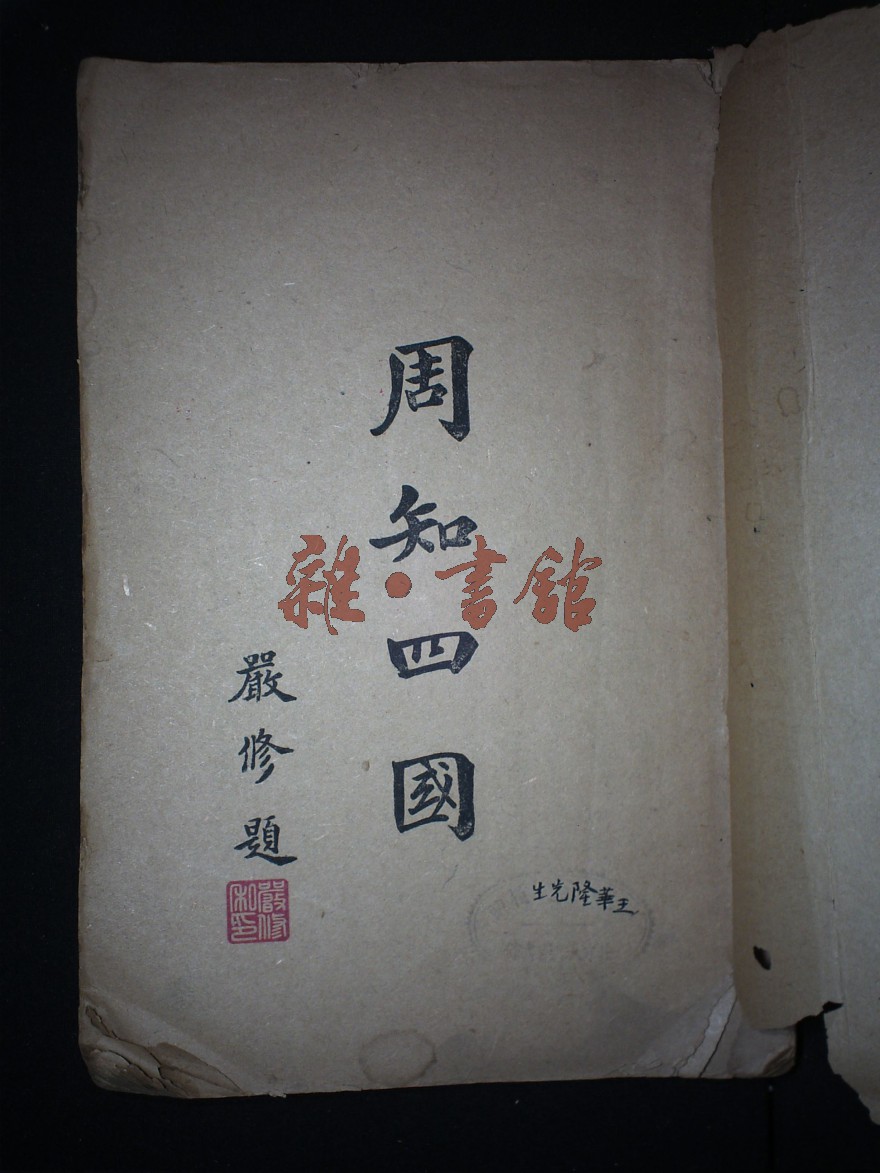 周知四國
嚴修題
嚴修私印
王華隆先生
雜·書館